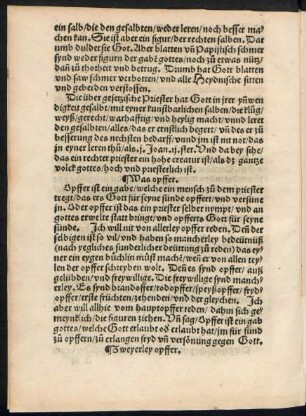 ein salb/die den gesalbten/weder leren/noch besser ma
chen kan. Sie ist aber ein figur/der rechten salben. Dar
umb duldet sie Got. Aber blatten vñ Papistisch schmer
synd weder figurn der gabē gottes/noch zu etwas nütz/
dañ zů thorheit vnd betrug. Diumb hat Gott blatten
vnd saw schmer verbotten/vnd alle Heydnische sitten
vnd geberden verstossen.
Die über gesetzische Priester hat Gott in jrer yñwen
digkeit gesalbt/mit eyner künstbarlichen salben/der klůg/
weyß/gerecht/warhafftig/vnd heylig macht/vnnd leret
den gesalbten/alles/das er ernstlich begert/vñ des er zů
besserung des nechsten bedarff/vnnd jm ist nit not/das
jn eyner leren thü/als.j. Joan.ij.stet. Vnd da bey siche/
das ein rechter priester ein hohe creatur ist/als dz gantze
volck gottes/hoch vnd priesterlich ist.
¶Was opffer.
Opffer ist ein gabe/welche ein mensch zů dem priester
tregt/das ers Gott für seyne sünde opffert/vnd versüne
jn. Oder opffer ist das ein priester selber nympt/vnd an
gottes erwelte statt bringt/vnd opfferts Gott für seyne
sünde. Ich will nit von allerley opffer reden. Deñ der
selbigen ist so vil/vnd haben so mancherley bedeütnüß
(nach yegliches sunderlicher deütung zů reden) das ey
ner ein eygen büchlin můst machē/weñ er von allen tey
len der opffer schreyben wolt. Deñ es synd opffer/auß
gelübden/vnd freywillige. Die freywillige synd manch
erley. Es synd brandoffer/todopffer/speyßopffer/frydt
opffer/erste früchten/zehenden/vnd der gleychen. Ich
aber will allhie vom hauptopffer reden/dahin sich ge
meynklich/die figuren ziehen. Vñ sag/Opffer ist ein gab
gottes/welche Gott erlaubt od erlaubt hat/jm für sünd
zů opffern/zů erlangen fryd vñ versönung gegen Gott.
¶Zweyerley opffer.